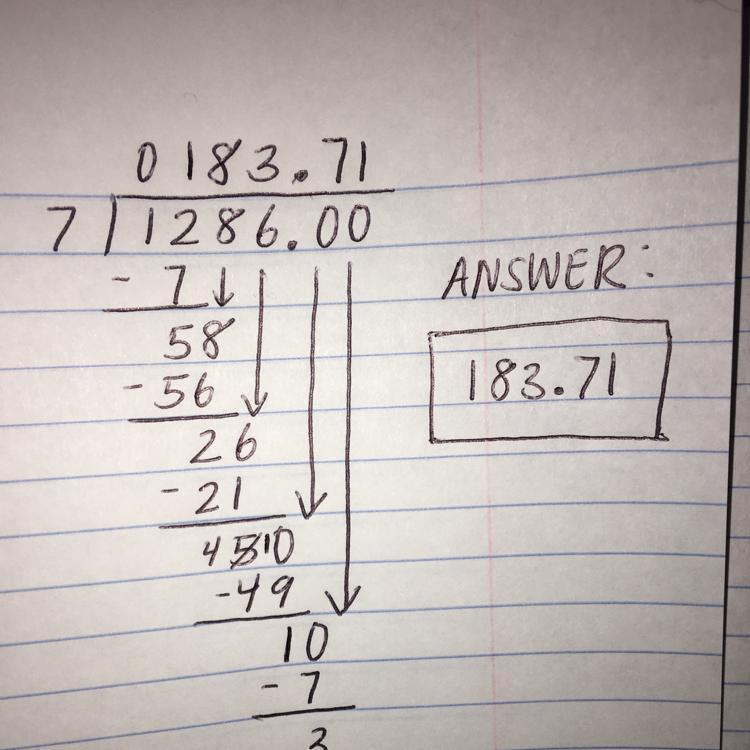 0183.71
7 1286.00
- 7
58
ANSWER:
-56
183.71
26
-21
4 5 10
-49
10
- 7
3